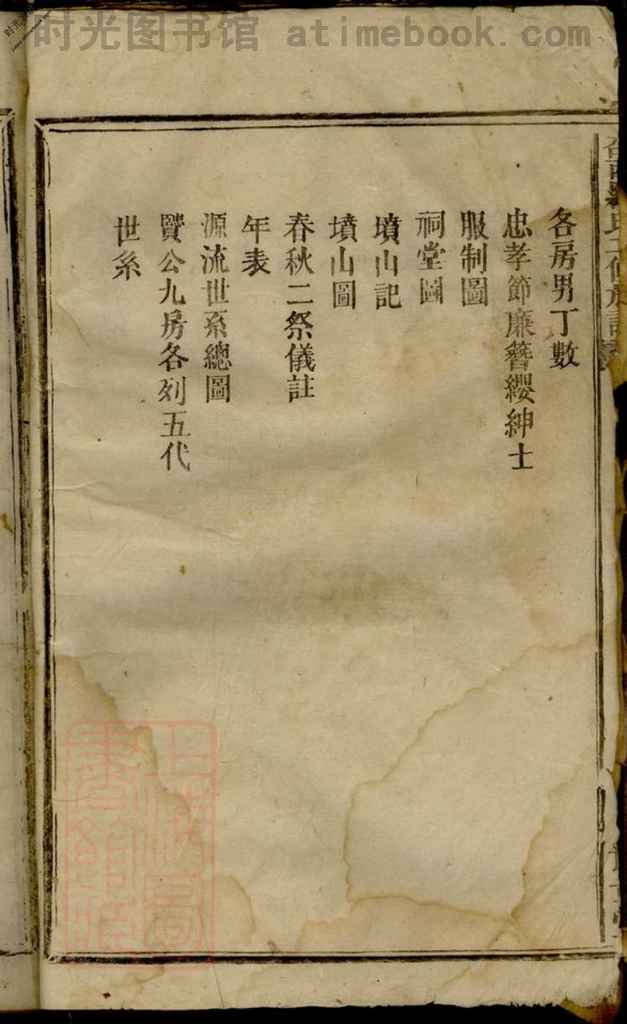 时光图书馆 atimebook.com
各房男丁數
忠孝節廉簪纓紳士
服制圖
祠堂圖
墳山記
墳山圖
春秋二祭儀註
年表
源流世系總圖
賢公九房各列五代
世系